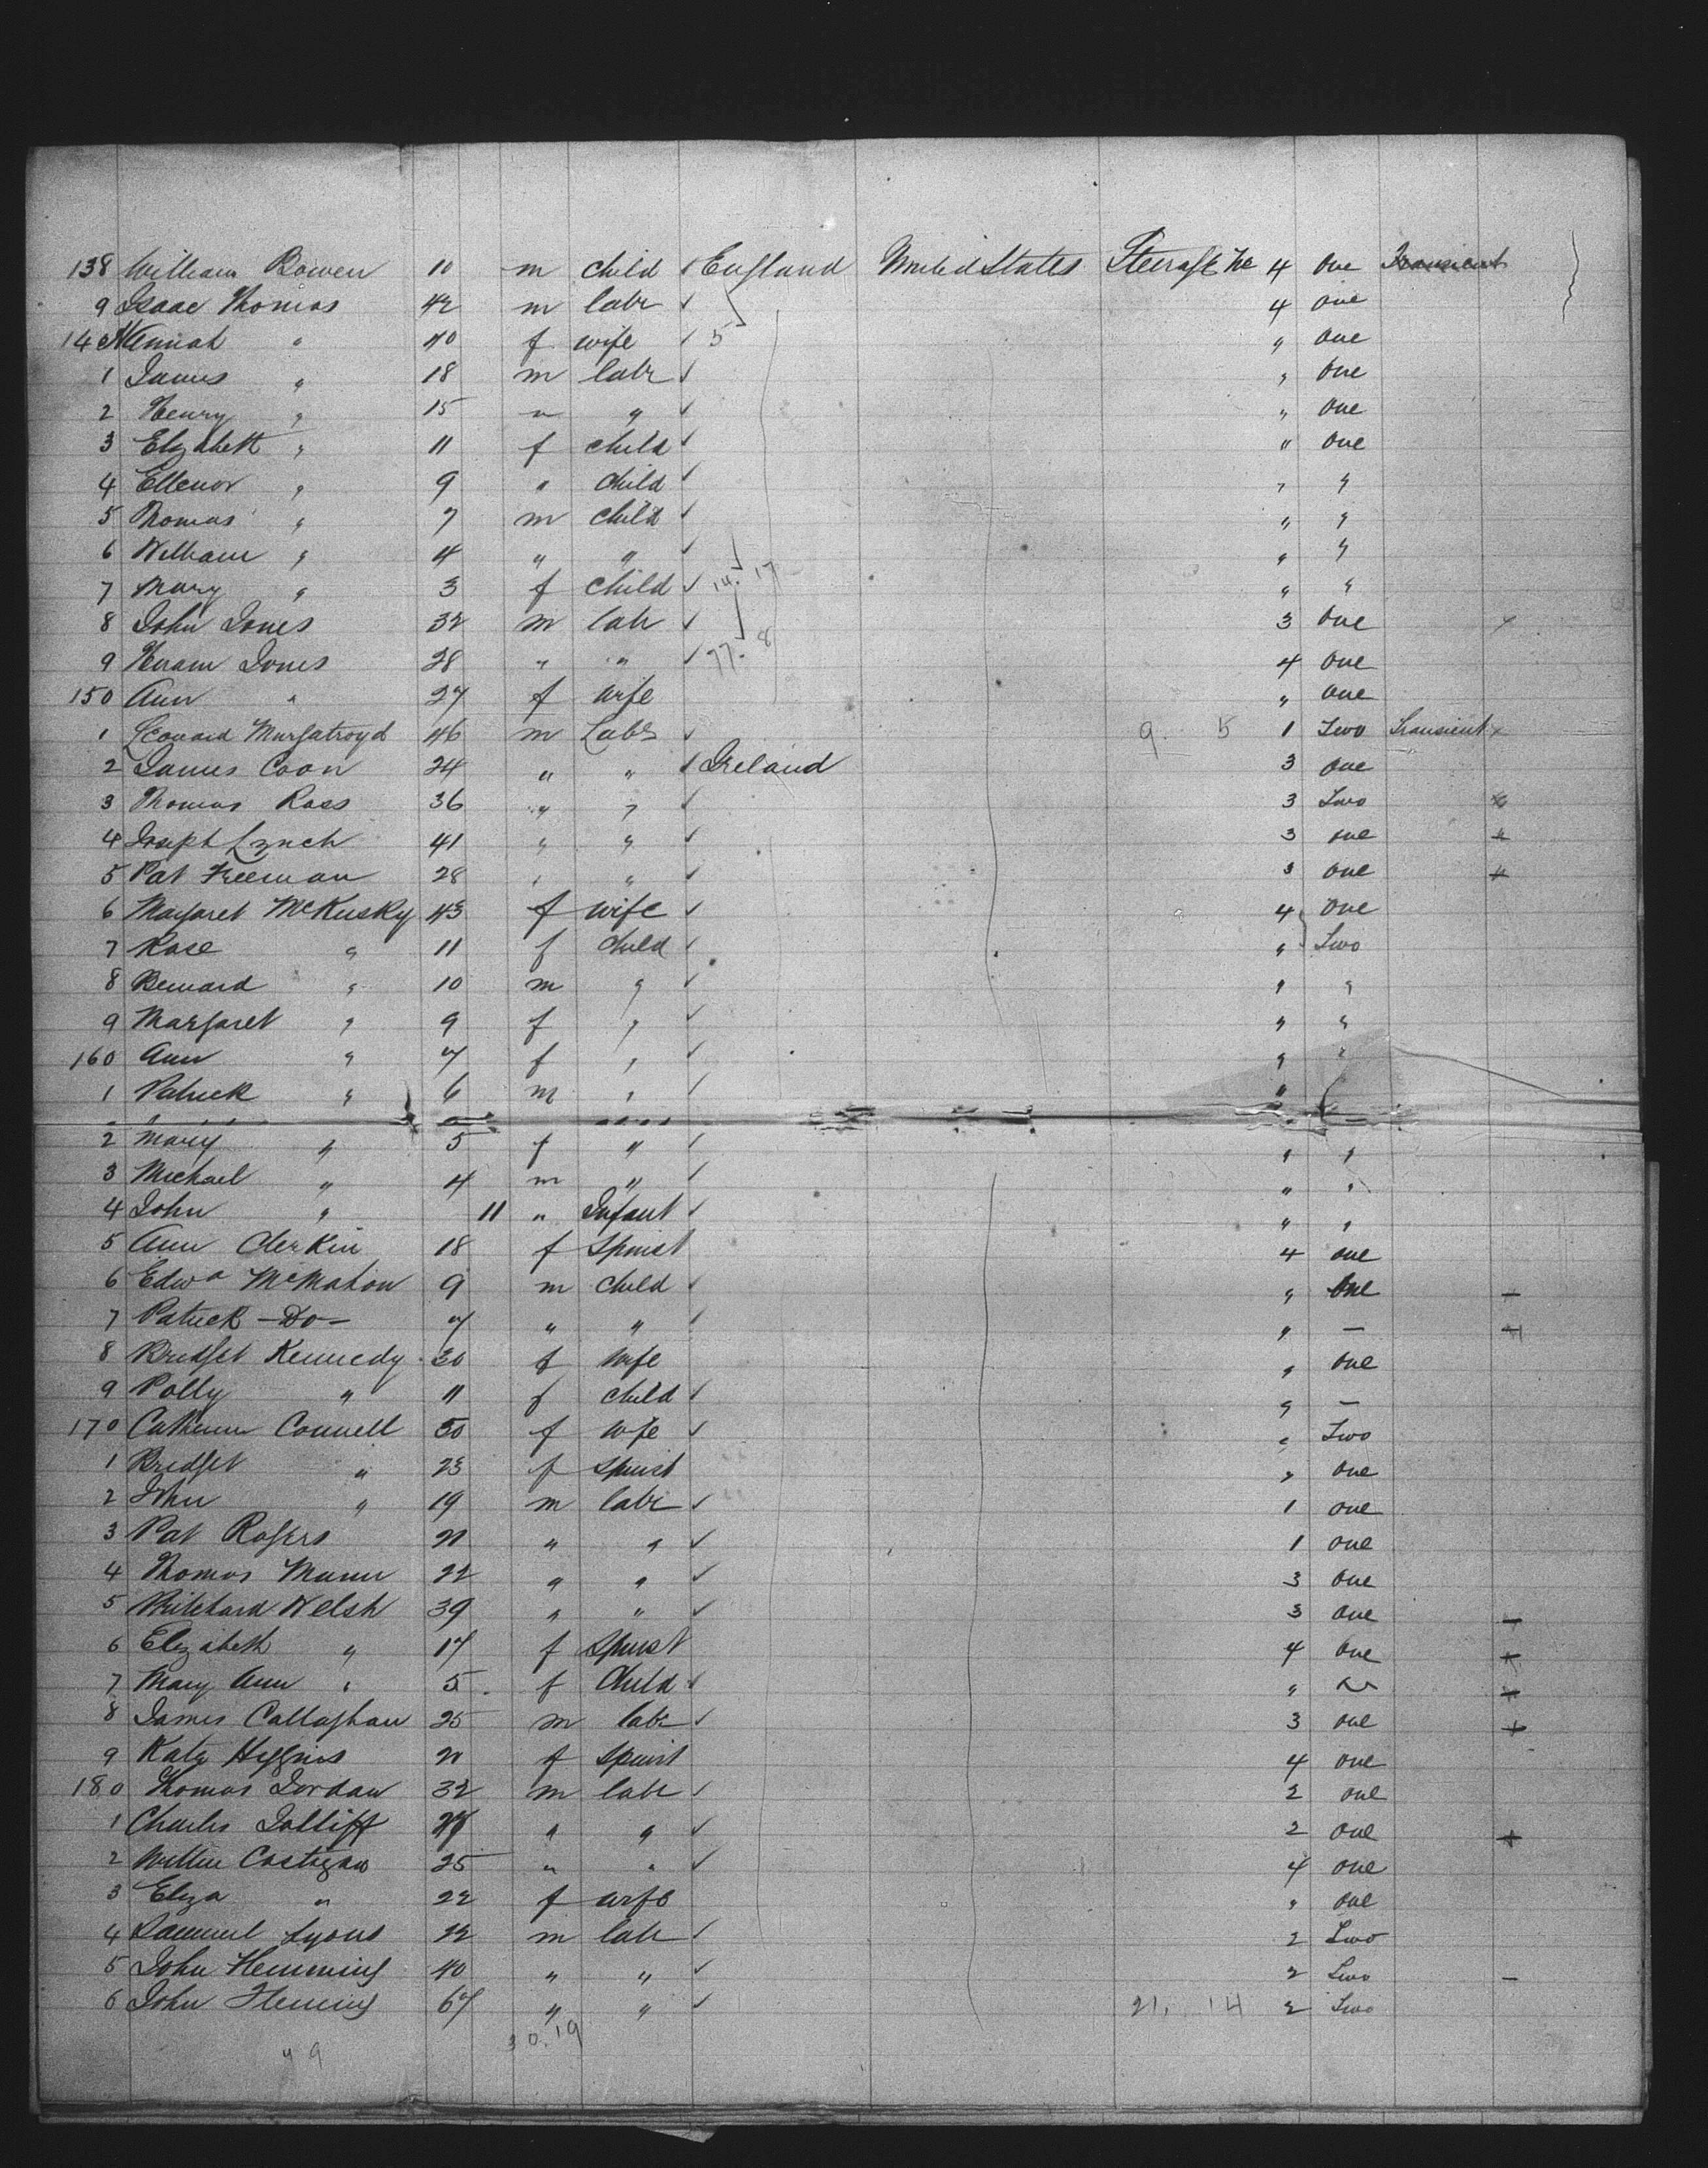 138 William Bowen 10 m child ✓ England United States Steerage No 4 One Transient
9 Isaac Thomas 42 m labr ✓ 4 One
140 " 40 f wife ✓ 5 " One
1 James " 18 m labr ✓ " One
2 Henry " 15 " " ✓ " One
3 Elizabeth " 11 f child ✓ " One
4 Ellenor " 9 " child ✓ " "
5 Thomas " 7 m child ✓ " "
6 William " 4 " " ✓ " "
7 Mary " 3 f child ✓ 14. 17 " "
8 John Jones 32 m labr ✓ 3 One
9 Hiram Jones 28 " " ✓ 77. 8 4 One
150 Ann " 27 f wife " One
1 Leonard Murgatroyd 46 m Labr ✓ 9. 5 1 Two Transient
2 James Coon 24 " " ✓ Ireland 3 One
3 Thomas Ross 36 " " ✓ 3 Two
4 Joseph Lynch 41 " " ✓ 3 one
5 Pat Freeman 28 " " ✓ 3 one
6 Margaret McKusky 43 f wife ✓ 4 One
7 Rose " 11 f child ✓ " Two
8 Bernard " 10 m " ✓ " "
9 Margaret " 9 f " ✓ " "
160 Ann " 7 f " ✓ " "
1 Patrick " 6 m " ✓ "
2 Mary " 5 f " ✓ " "
3 Michael " 4 m " ✓ " "
4 John " 11 " Infant ✓ " "
5 Ann Clerkin 18 f Spinst 4 one
6 Edwd McMahon 9 m child ✓ " One –
7 Patrick –Do– 7 " " ✓ " –
8 Bridget Kennedy 30 f wife " one
9 Polly " 11 f child ✓ " –
170 Catherine Connell 50 f wife ✓ " Two
1 Bridget " 23 f spinst " one
2 John " 19 m labr ✓ 1 one
3 Pat Rogers 21 " " ✓ 1 one
4 Thomas Munn 22 " " ✓ 3 one
5 Welsh 39 " " ✓ 3 one –
6 Elizabeth " 17 f spinst 4 one
7 Mary Ann " 5 f child ✓ "
8 James Callaghan 25 m labr ✓ 3 one +
9 Katy Higgins f spinst 4 one
180 Thomas Jordan 32 m labr ✓ 2 one
1 Charles Jolliff " " ✓ 2 one +
2 Costigan 25 " " ✓ 4 one
3 Eliza " 22 f wife " one
4 Samuel Lyons 22 m labr ✓ 2 Two
5 John Hemming 40 " " ✓ 2 Two –
6 John Fleming 67 " " ✓ 21. 14 2 Two
30.19